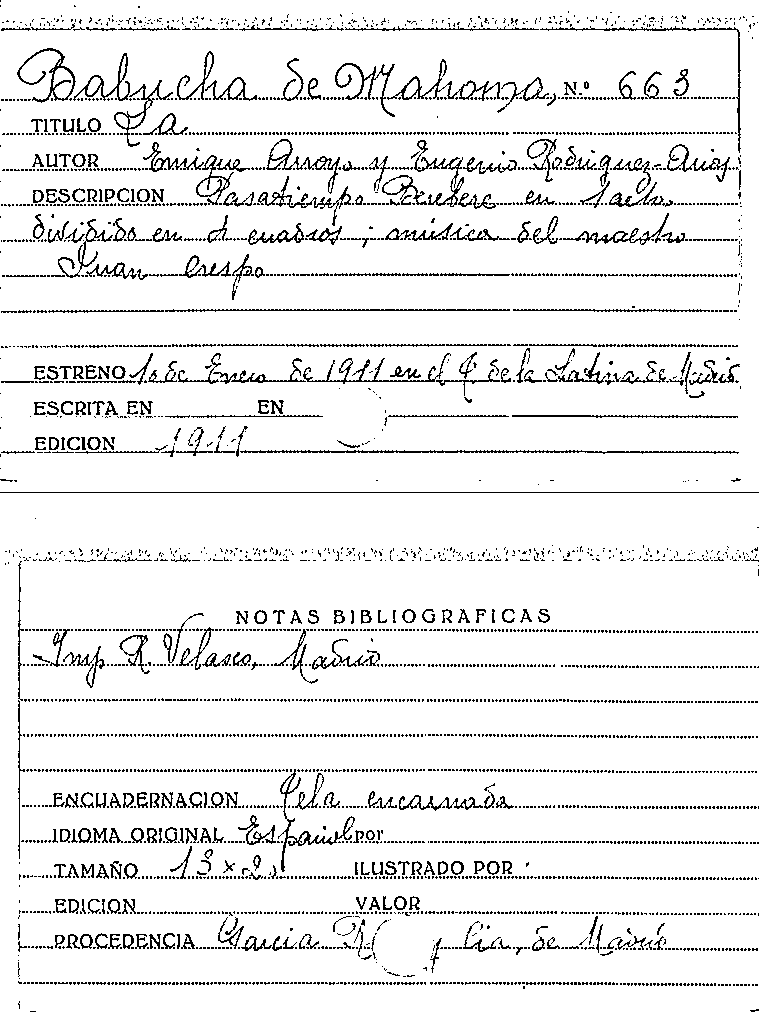 Babucha de Mahoma, N.º 663
TITULO La
AUTOR Enrique Arroyo y Eugenio Rodriguez-Arias
DESCRIPCION Pasatiempo Berebere en 1 acto
dividido en 4 cuadros; música del maestro
Juan Crespo
ESTRENO 1o de Enero de 1911 en el T. de la Latina de Madrid
ESCRITA EN EN
EDICION 1911
NOTAS BIBLIOGRAFICAS
Imp R. Velasco, Madrid
ENCUADERNACION Tela encarnada
IDIOMA ORIGINAL Español por
TAMAÑO 13 x ILUSTRADO POR
EDICION VALOR
PROCEDENCIA Garcia y Cia, de Madrid